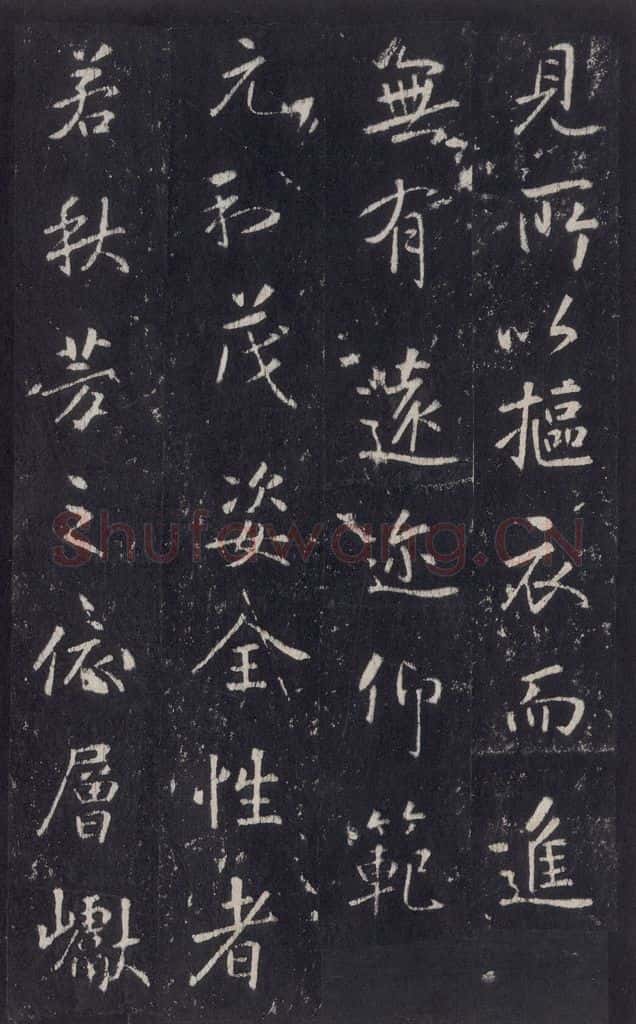 見所以摳衣而進
無有遠迩仰範
元和茂姿全性者
若秋芳之依層巘
Shufawang.CN